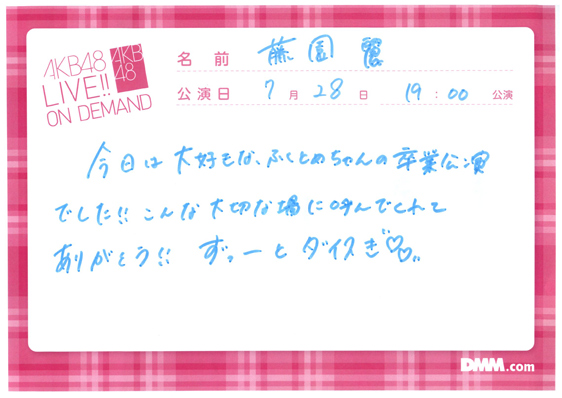 AKB48
LIVE!!
ON DEMAND
AKB
48
名前 藤園 麗
公演日 7月28日 19:00 公演
今日は大好きな、ふくとめちゃんの卒業公演
でした!! こんな大切な場に呼んでくれて
ありがとう!! ずっーとダイスき♡♡
DMM.com